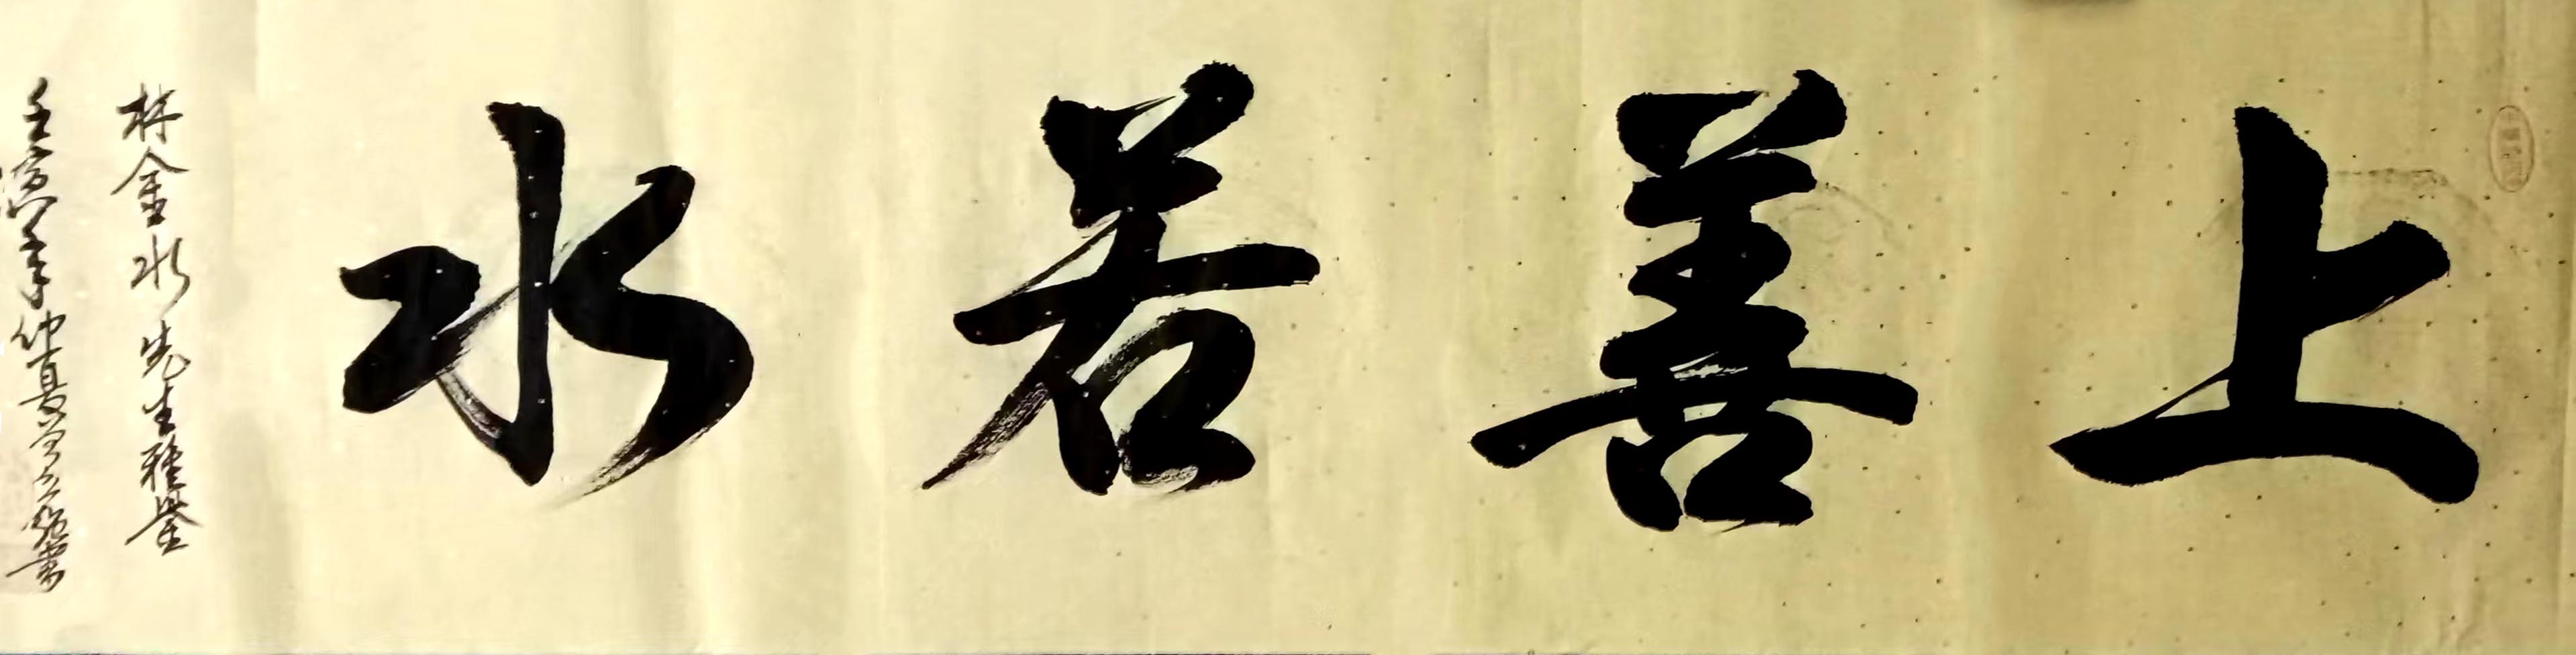 上善若水
林金水先生雅鉴
壬寅年仲夏